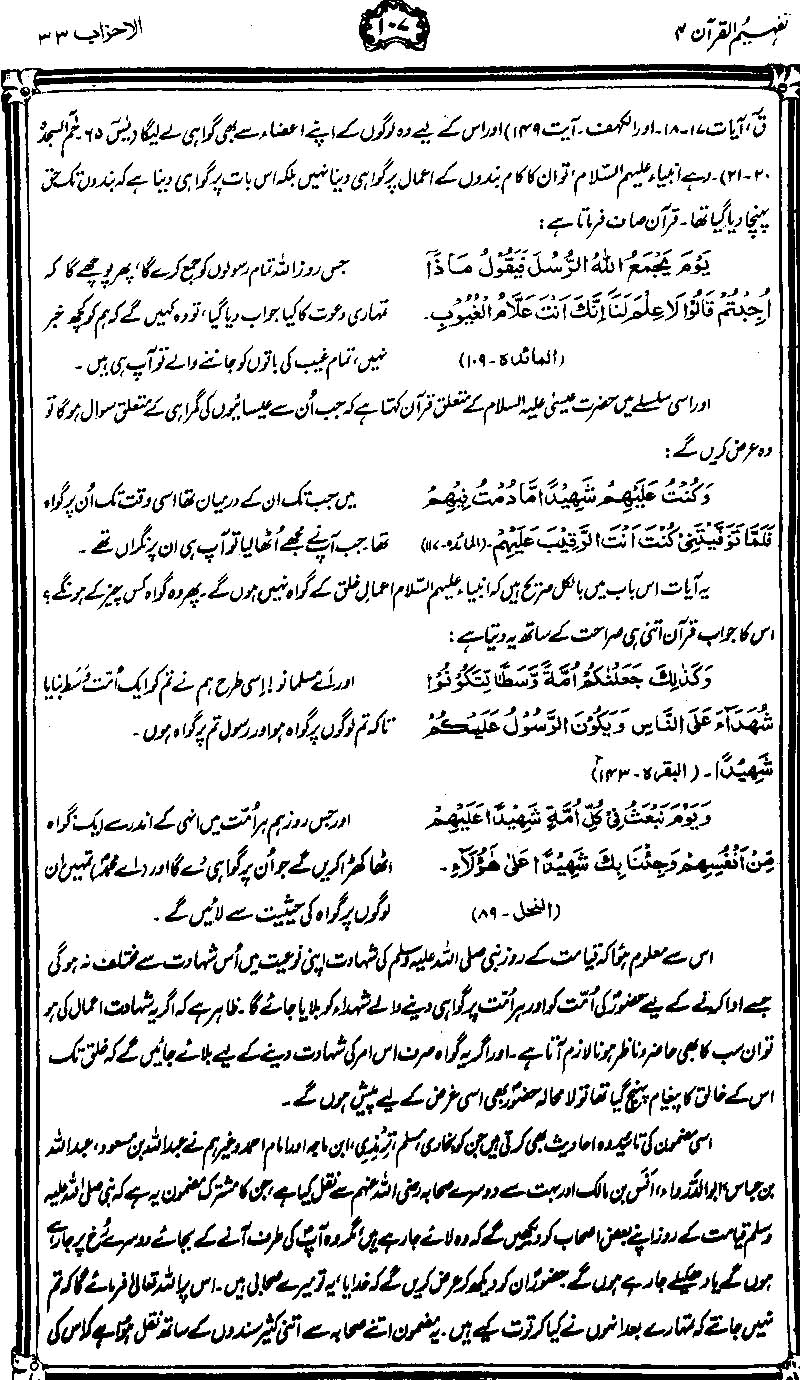 تفہیم القرآن ۴
۱۰۷
الاحزاب ۳۳
قٓ، آیات ۱۷-۱۸۔ اور الکہف۔ آیت ۴۹) اور اس کے لیے وہ لوگوں کے اپنے اعضاء سے بھی گواہی لے لیگا (یٰسٓ ۶۵ حٰم السجدہ
۲۰-۲۱)۔ رہے انبیاء علیہم السلام، تو ان کا کام بندوں کے اعمال پر گواہی دینا نہیں بلکہ اس بات پر گواہی دینا ہے کہ بندوں تک حق
پہنچا دیا گیا تھا۔ قرآن صاف فرماتا ہے:
یَوْمَ یَجْمَعُ اللهُ الرُّسُلَ فَیَقُوْلُ مَاذَآ
اُجِبْتُمْ قَالُوْا لَا عِلْمَ لَنَا اِنَّكَ اَنْتَ عَلَّامُ الْغُیُوْبِ۔
(المائدۃ-۱۰۹)
جس روز اللہ تمام رسولوں کو جمع کرے گا، پھر پوچھے گا کہ
تمہاری دعوت کا کیا جواب دیا گیا، تو وہ کہیں گے کہ ہم کو کچھ خبر
نہیں، تمام غیب کی باتوں کو جاننے والے تو آپ ہی ہیں۔
اور اسی سلسلے میں حضرت عیسیٰ علیہ السلام کے متعلق قرآن کہتا ہے کہ جب اُن سے عیسائیوں کی گمراہی کے متعلق سوال ہوگا تو
وہ عرض کریں گے:
وَكُنْتُ عَلَیْهِمْ شَهِیْدًا مَّا دُمْتُ فِیْهِمْ
فَلَمَّا تَوَفَّیْتَنِیْ كُنْتَ اَنْتَ الرَّقِیْبَ عَلَیْهِمْ۔ (المائدہ-۱۱۷)
میں جب تک ان کے درمیان تھا اسی وقت تک اُن پر گواہ
تھا۔ جب آپ نے مجھے اُٹھا لیا تو آپ ہی ان پر نگراں تھے۔
یہ آیات اس باب میں بالکل صریح ہیں کہ انبیاء علیہم السلام اعمالِ خلق کے گواہ نہیں ہوں گے۔ پھر وہ گواہ کس چیز کے ہونگے؟
اس کا جواب قرآن اتنی ہی صراحت کے ساتھ یہ دیتا ہے:
وَكَذٰلِكَ جَعَلْنٰكُمْ اُمَّةً وَّسَطًا لِّتَكُوْنُوْا
شُهَدَآءَ عَلَی النَّاسِ وَیَكُوْنَ الرَّسُوْلُ عَلَیْكُمْ
شَهِیْدًا۔ (البقرہ-۱۴۳)
اور اَے مسلمانو! اِسی طرح ہم نے تم کو ایک اُمّتِ وَسَط بنایا
تاکہ تم لوگوں پر گواہ ہو اور رسول تم پر گواہ ہوں۔
وَیَوْمَ نَبْعَثُ فِیْ كُلِّ اُمَّةٍ شَهِیْدًا عَلَیْهِمْ
مِّنْ اَنْفُسِهِمْ وَجِئْنَا بِكَ شَهِیْدًا عَلٰی هٰٓؤُلَآءِ۔
(النحل-۸۹)
اور جس روز ہم ہر اُمّت میں انہی کے اندر سے ایک گواہ
اٹھا کھڑا کریں گے جو اُن پر گواہی دے گا اور (اے محمدؐ) تمہیں ان
لوگوں پر گواہ کی حیثیت سے لائیں گے۔
اس سے معلوم ہُوا کہ قیامت کے روز نبی صلی اللہ علیہ وسلم کی شہادت اپنی نوعیت میں اُس شہادت سے مختلف نہ ہوگی
جسے ادا کرنے کے لیے حضورؐ کی اُمّت کو اور ہر اُمّت پر گواہی دینے والے شہداء کو بلایا جائے گا۔ ظاہر ہے کہ اگر یہ شہادت اعمال کی ہو
تو ان سب کا بھی حاضر و ناظر ہونا لازم آتا ہے۔ اور اگر یہ گواہ صرف اس امر کی شہادت دینے کے لیے بلائے جائیں گے کہ خلق تک
اس کے خالق کا پیغام پہنچ گیا تھا تو لا محالہ حضورؐ بھی اسی غرض کے لیے پیش ہوں گے۔
اسی مضمون کی تائید وہ احادیث بھی کرتی ہیں جن کو بخاری، مسلم، ترمذی، ابن ماجہ اور امام احمد وغیرہم نے عبداللہ بن مسعود، عبداللہ
بن عباس، ابوالدّرداء، اَنَس بن مالک اور بہت سے دوسرے صحابہ رضی اللہ عنہم سے نقل کیا ہے، جن کا مشترک مضمون یہ ہے کہ نبی صلی اللہ علیہ
وسلم قیامت کے روز اپنے بعض اصحاب کو دیکھیں گے کہ وہ لائے جا رہے ہیں، مگر وہ آپؐ کی طرف آنے کے بجائے دوسرے رُخ پر جا رہے
ہوں گے یا دھکیلے جا رہے ہوں گے۔ حضورؐ ان کو دیکھ کر عرض کریں گے کہ خدایا، یہ تو میرے صحابی ہیں۔ اس پر اللہ تعالیٰ فرمائے گا کہ تم
نہیں جانتے کہ تمہارے بعد انہوں نے کیا کرتوت کیے ہیں۔ یہ مضمون اتنے صحابہ سے اتنی کثیر سندوں کے ساتھ نقل ہُوا ہے کہ اس کی